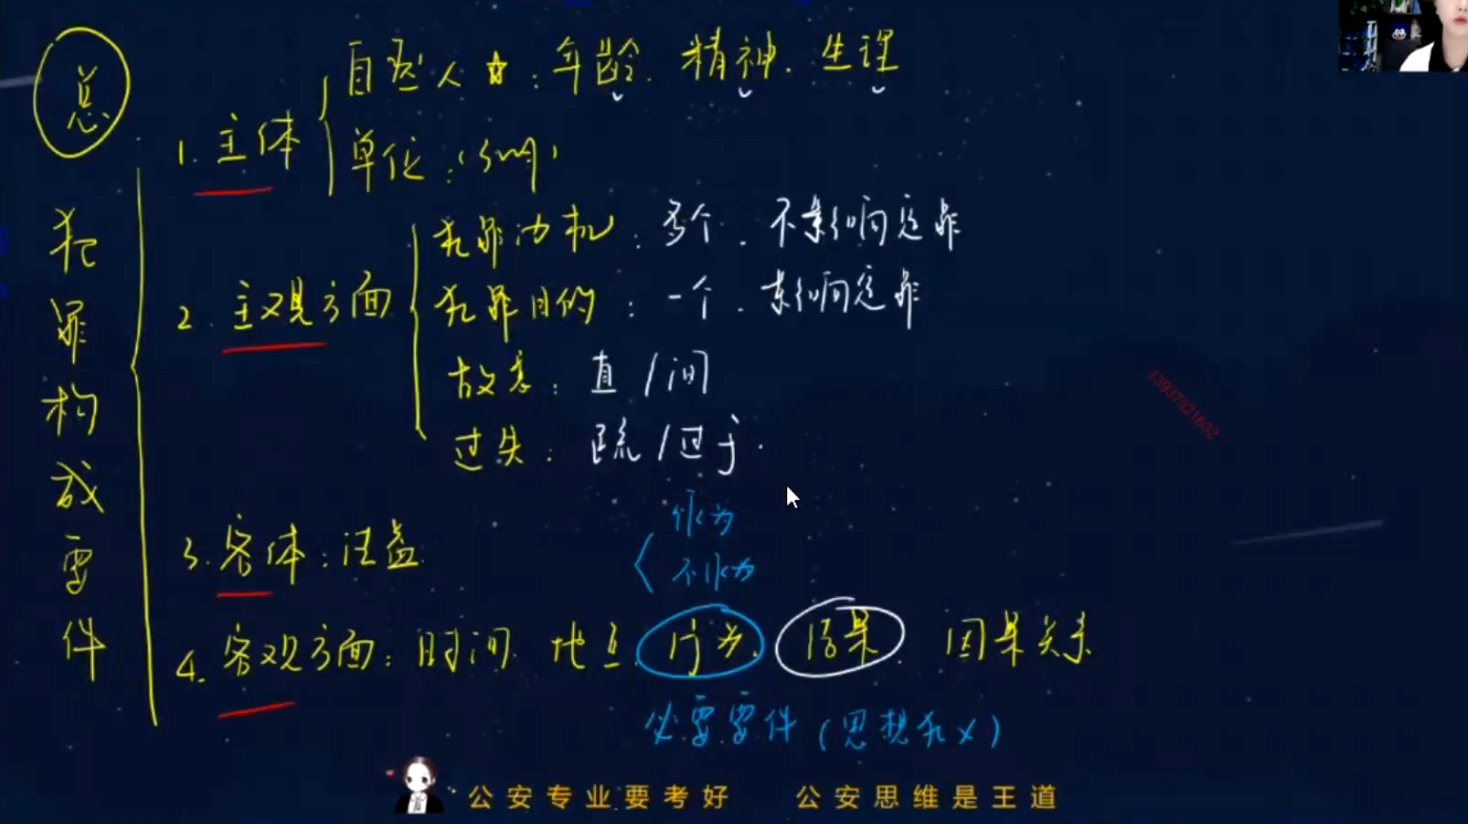 总
犯罪构成要件
1. 主体
自然人☆：年龄. 精神. 生理
单位：
2. 主观方面
犯罪动机：多个. 不影响定罪
犯罪目的：一个. 影响定罪
故意：直/间
过失：疏/过于.
3. 客体：法益
作为
不作为
4. 客观方面：时间 地点 行为. 结果. 因果关系
必要要件（思想犯×）
13937521632
公安专业要考好 公安思维是王道